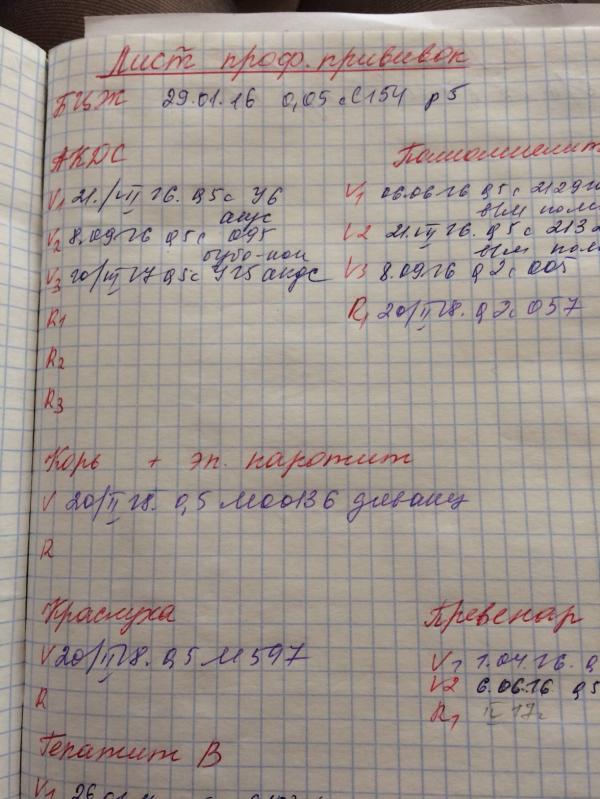 Лист проф. прививок
БЦЖ 29.01.16 0,05 с С154 р 5
АКДС
V1 21./VII 16. 0,5 с У6
акдс
V2 8.09 16 0,5 с 095
бубо-кок
V3 20/III 17 0,5 с У25 акдс
R1
R2
R3
Полиомиелит
V1 06.06 16 0,5 с
V2 21.VII 16. 0,5 с 2132
V3 8.09 16 0,2 с 005
R1 20/II 18. 0,2 с 057
Корь + эп. паротит
V 20/II 18. 0,5 М00136 дивакц
R
Краснуха
V 20/II 18. 0,5 М597
R
Превенар
V1 1.04.16. 0,
V2 6.06.16 0,5
R1 II 17г
Гепатит В
V1